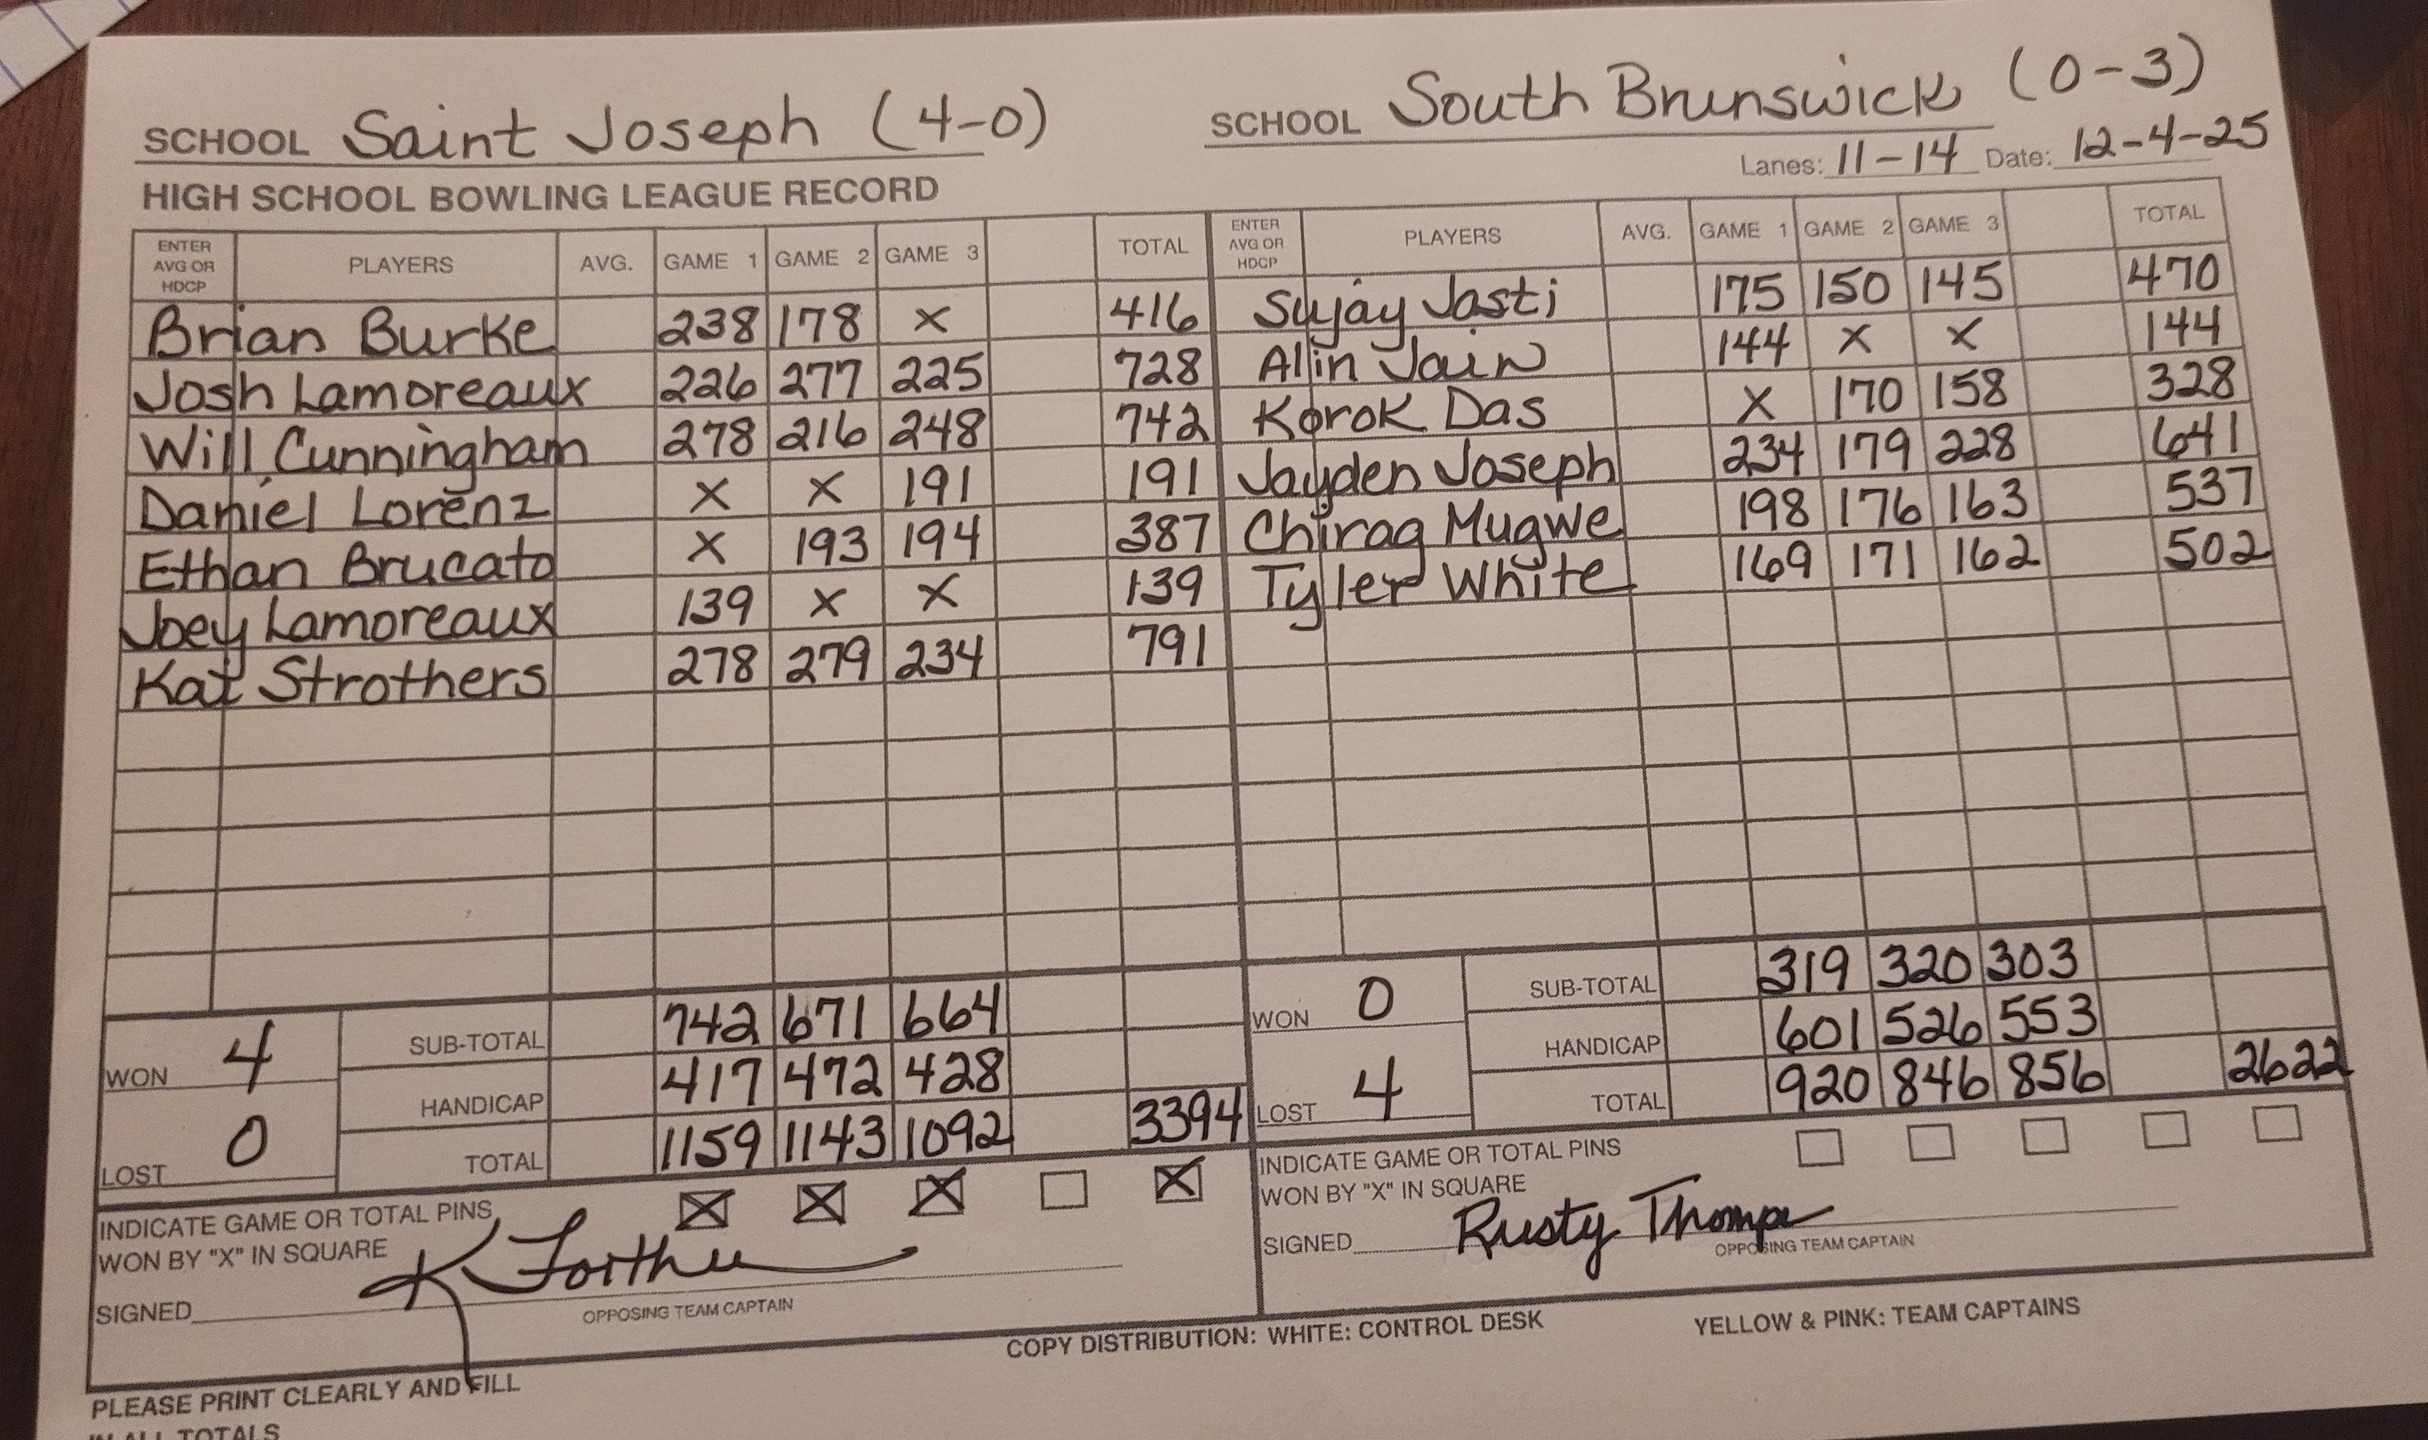 SCHOOL Saint Joseph (4-0) SCHOOL South Brunswick (0-3)
Lanes: 11-14 Date: 12-4-25
HIGH SCHOOL BOWLING LEAGUE RECORD
ENTER AVG OR HDCP PLAYERS AVG. GAME 1 GAME 2 GAME 3 TOTAL ENTER AVG OR HDCP PLAYERS AVG. GAME 1 GAME 2 GAME 3 TOTAL
Brian Burke 238 178 X 416 Sujay Jasti 175 150 145 470
Josh Lamoreaux 226 277 225 728 Alin Jain 144 X X 144
Will Cunningham 278 216 248 742 Korok Das X 170 158 328
Daniel Lorenz X X 191 191 Jayden Joseph 234 179 228 641
Ethan Brucato X 193 194 387 Chirag Mugwe 198 176 163 537
Joey Lamoreaux 139 X X 139 Tyler White 169 171 162 502
Kat Strothers 278 279 234 791
WON 4 SUB-TOTAL 742 671 664 WON 0 SUB-TOTAL 319 320 303
HANDICAP 417 472 428 HANDICAP 601 526 553
LOST 0 TOTAL 1159 1143 1092 3394 LOST 4 TOTAL 920 846 856 2622
INDICATE GAME OR TOTAL PINS X X X X INDICATE GAME OR TOTAL PINS
WON BY "X" IN SQUARE WON BY "X" IN SQUARE
SIGNED K SIGNED Rusty
OPPOSING TEAM CAPTAIN OPPOSING TEAM CAPTAIN
COPY DISTRIBUTION: WHITE: CONTROL DESK YELLOW & PINK: TEAM CAPTAINS
PLEASE PRINT CLEARLY AND FILL
IN ALL TOTALS